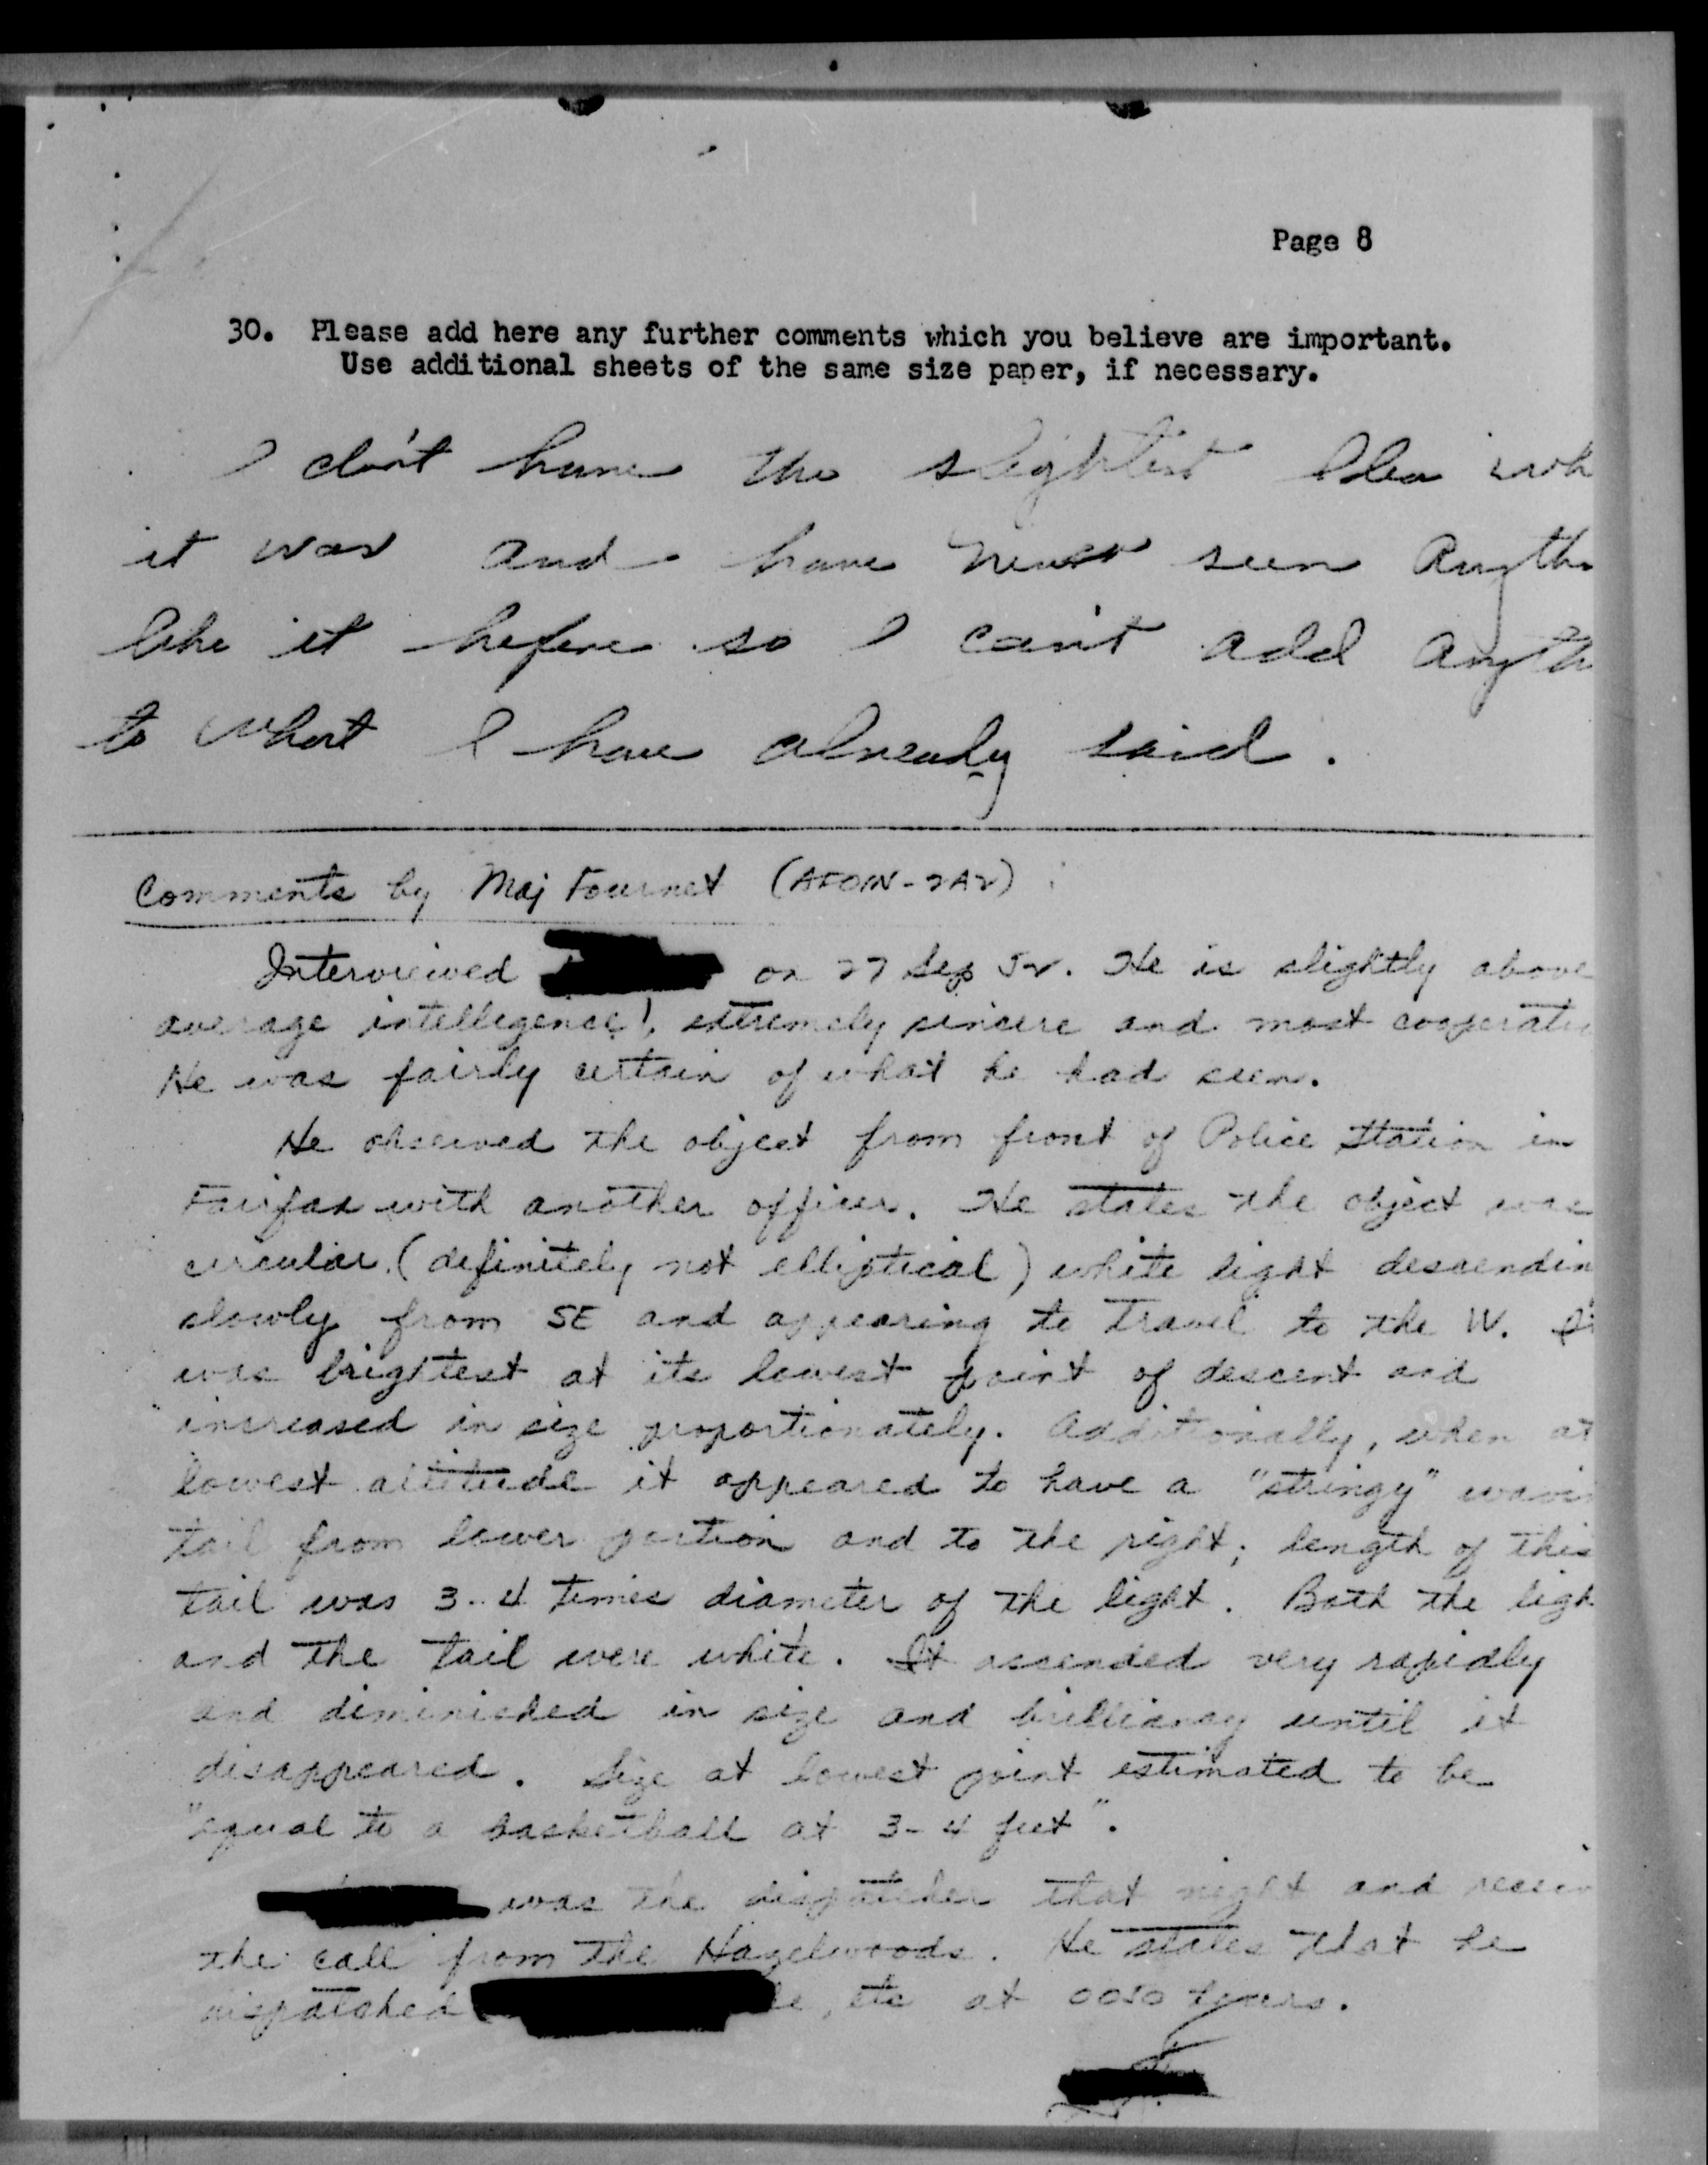 Page 8
30. Please add here any further comments which you believe are important.
Use additional sheets of the same size paper, if necessary.
I don't have the slightest Idea wh
it was and have never seen Anyth
like it before so I can't add Anyth
to what I have already said.
Comments by Maj Fournet (AFOIN-2A2):
Interviewed on 27 Sep 52. He is slightly above
average intelligence, extremely sincere and most cooperativ
He was fairly certain of what he had seen.
He observed the object from front of Police Station in
Fairfax with another officer. He states the object was
circular (definitely not elliptical) white light descendin
slowly from SE and appearing to travel to the W. It
was brightest at its lowest point of descent and
increased in size proportionately. Additionally, when at
lowest altitude it appeared to have a "stringy" wavin
tail from lower portion and to the right; length of this
tail was 3-4 times diameter of the light. Both the ligh
and the tail were white. It ascended very rapidly
and diminished in size and brilliancy until it
disappeared. Size at lowest point estimated to be
"equal to a basketball at 3-4 feet".
was the dispatcher that night and receiv
the call from the Hazelwoods. He states that he
dispatched , etc at hours.